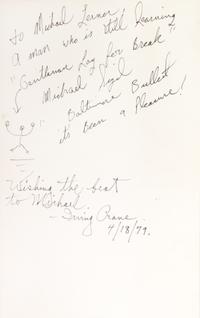 to Michael Lerner!
A man who is still learning
"Gentleman Lag for Break"
Michael
Baltimore Bullet
its been a Pleasure!
Wishing the best
to Michael
- Irving Crane
4/18/79.